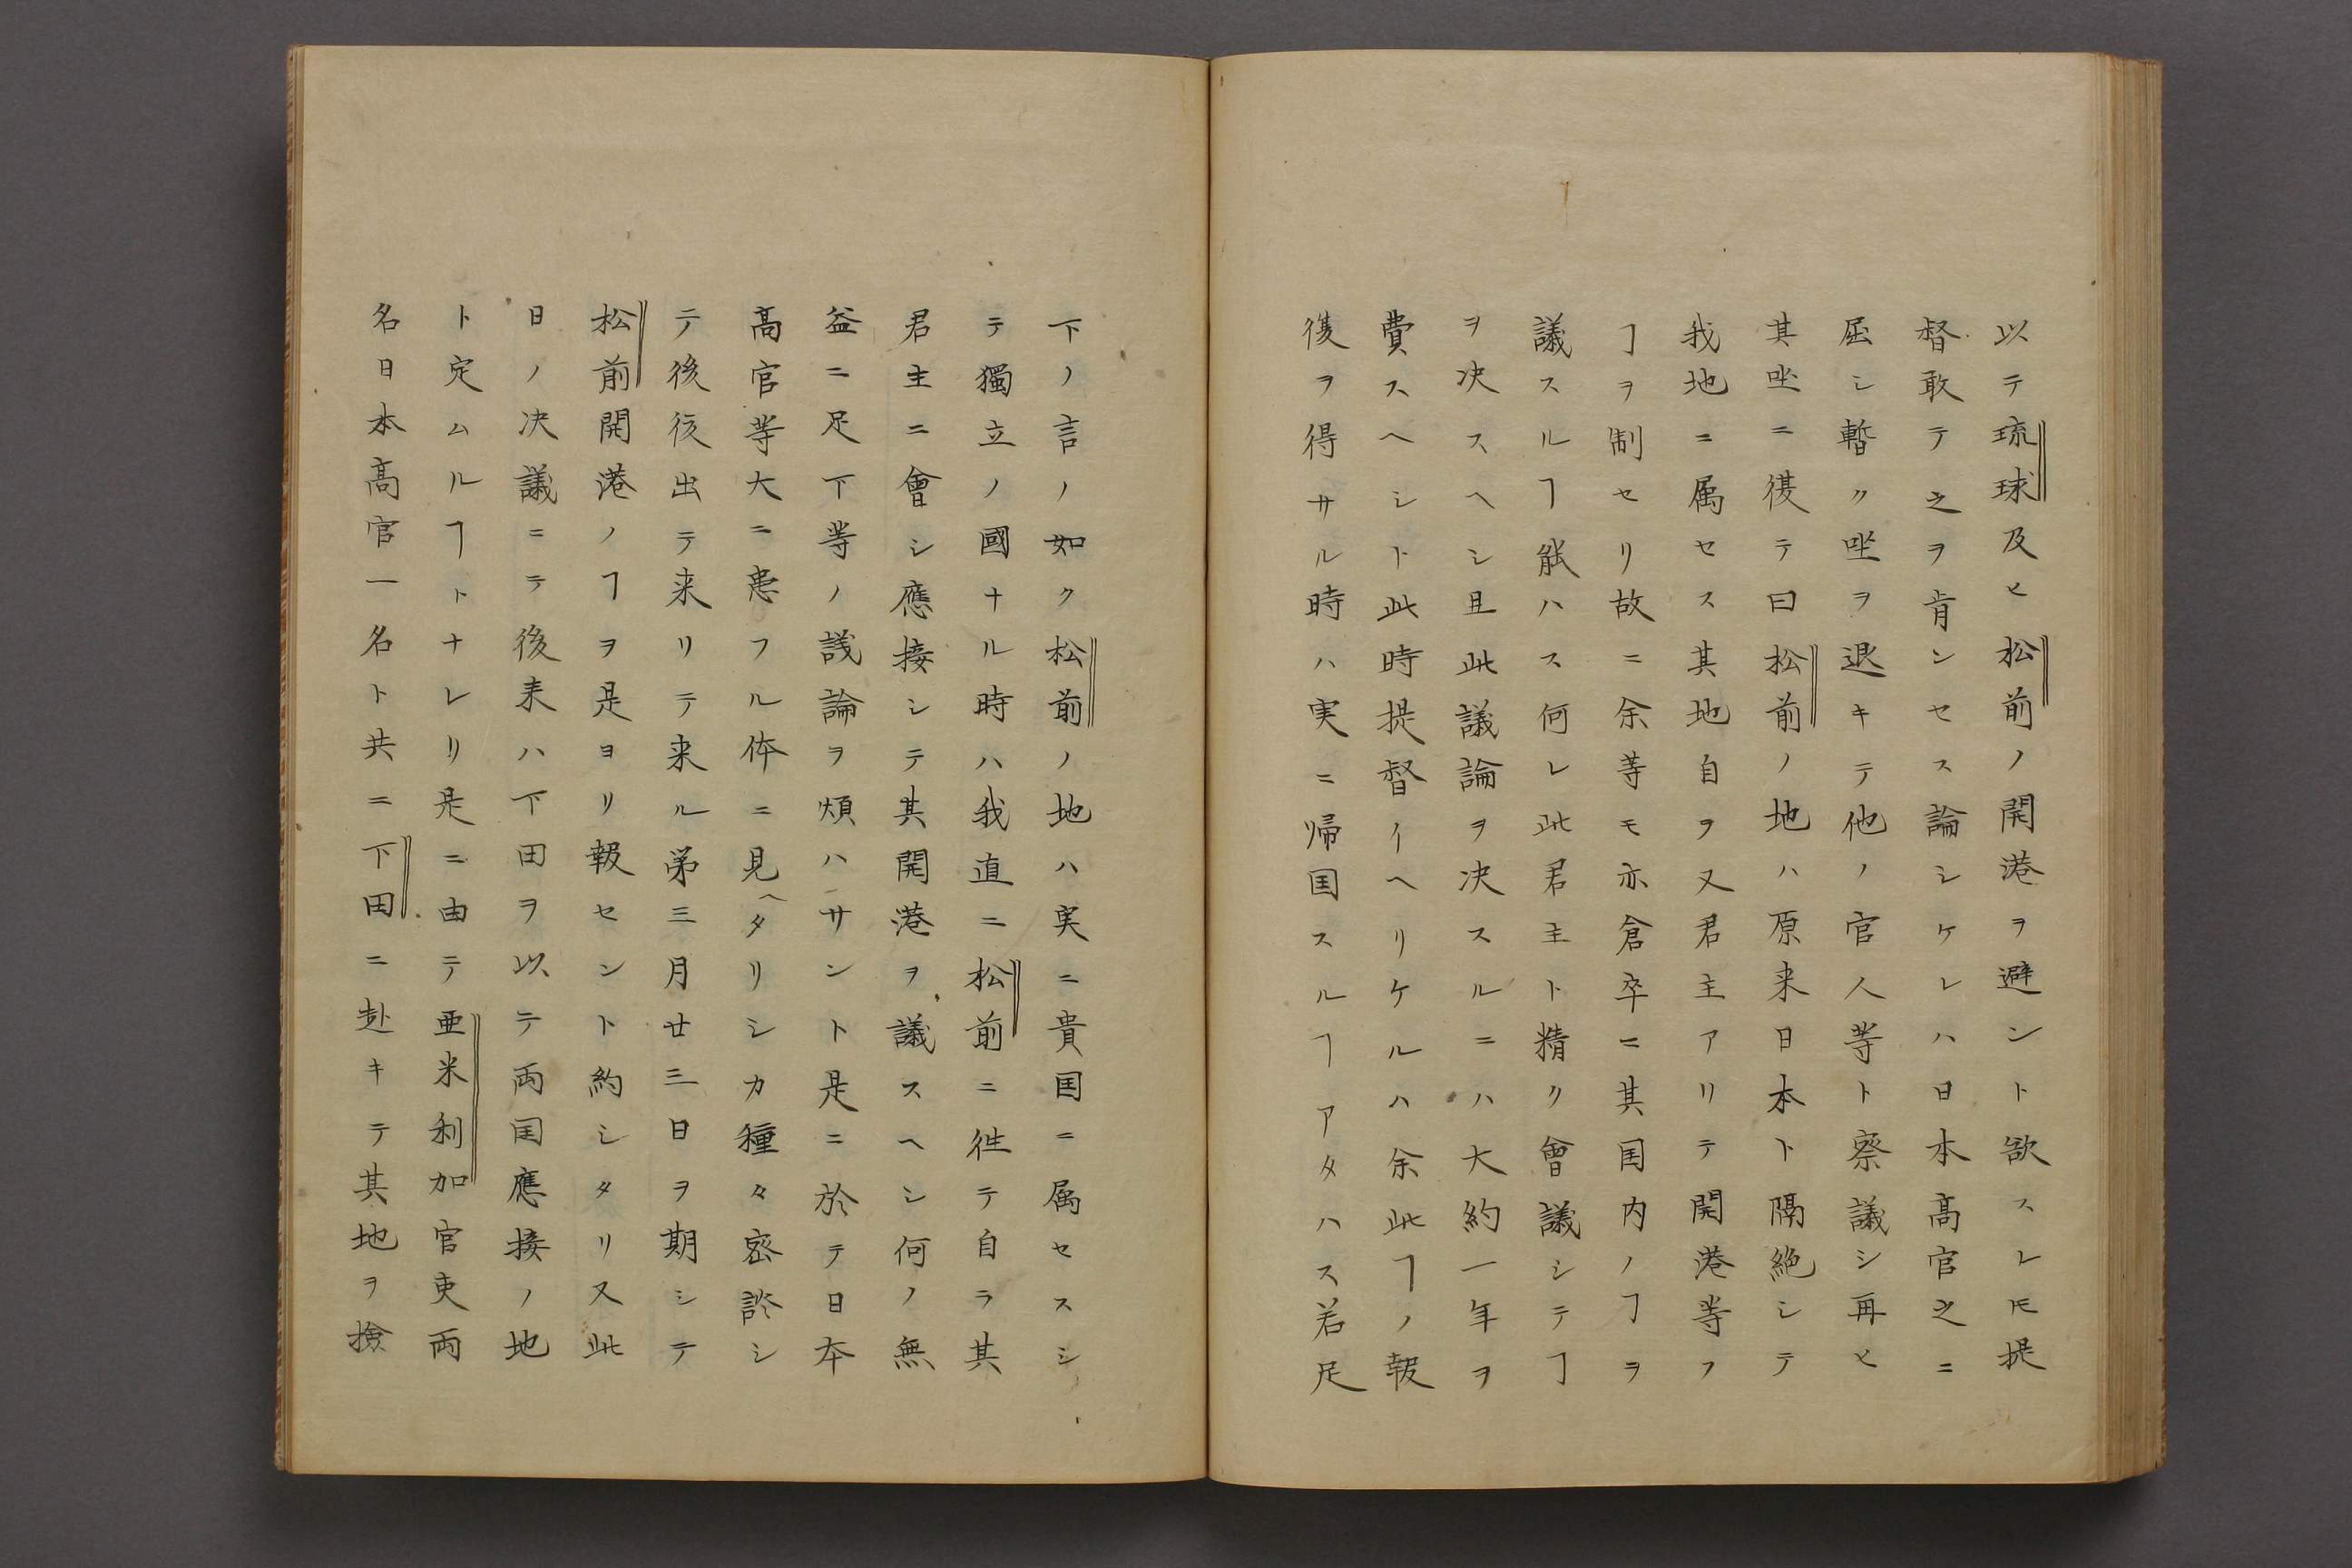 以テ琉球及ヒ松前ノ開港ヲ避ント欲スレ𪜈提
督敢テ之ヲ肯ンセス論シケレハ日本高官之ニ
屈シ暫ク坐ヲ退キテ他ノ官人等ト密議シ再ヒ
其坐ニ復テ曰松前ノ地ハ原来日本ト隔絶シテ
我地ニ属セス其地自ヲ又君主アリテ開港等フ
ヿヲ制セリ故ニ余等モ亦倉卒ニ其国内ノヿヲ
議スルヿ能ハス何レ此君主ト精ク會議シテヿ
ヲ决スヘシ且此議論ヲ决スルニハ大約一年ヲ
費スヘシト此時提督イヘリケルハ余此ヿノ報
復ヲ得サル時ハ実ニ帰国スルヿアタハス若足
下ノ言ノ如ク松前ノ地ハ実ニ貴国ニ属セスシ
テ獨立ノ國ナル時ハ我直ニ松前ニ徃テ自ラ其
君主ニ會シ應接シテ其開港ヲ議スヘシ何ノ無
益ニ足下等ノ議論ヲ煩ハサント是ニ於テ日本
高官等大ニ患フル体ニ見ヘタリシカ種々密談シ
テ後復出テ来リテ来ル第三月廿三日ヲ期シテ
松前開港ノヿヲ是ヨリ報セント約シタリ又此
日ノ决議ニテ後来ハ下田ヲ以テ両国應接ノ地
ト定ムルヿトナレリ是ニ由テ亜米利加官吏両
名日本高官一名ト共ニ下田ニ赴キテ其地ヲ撿